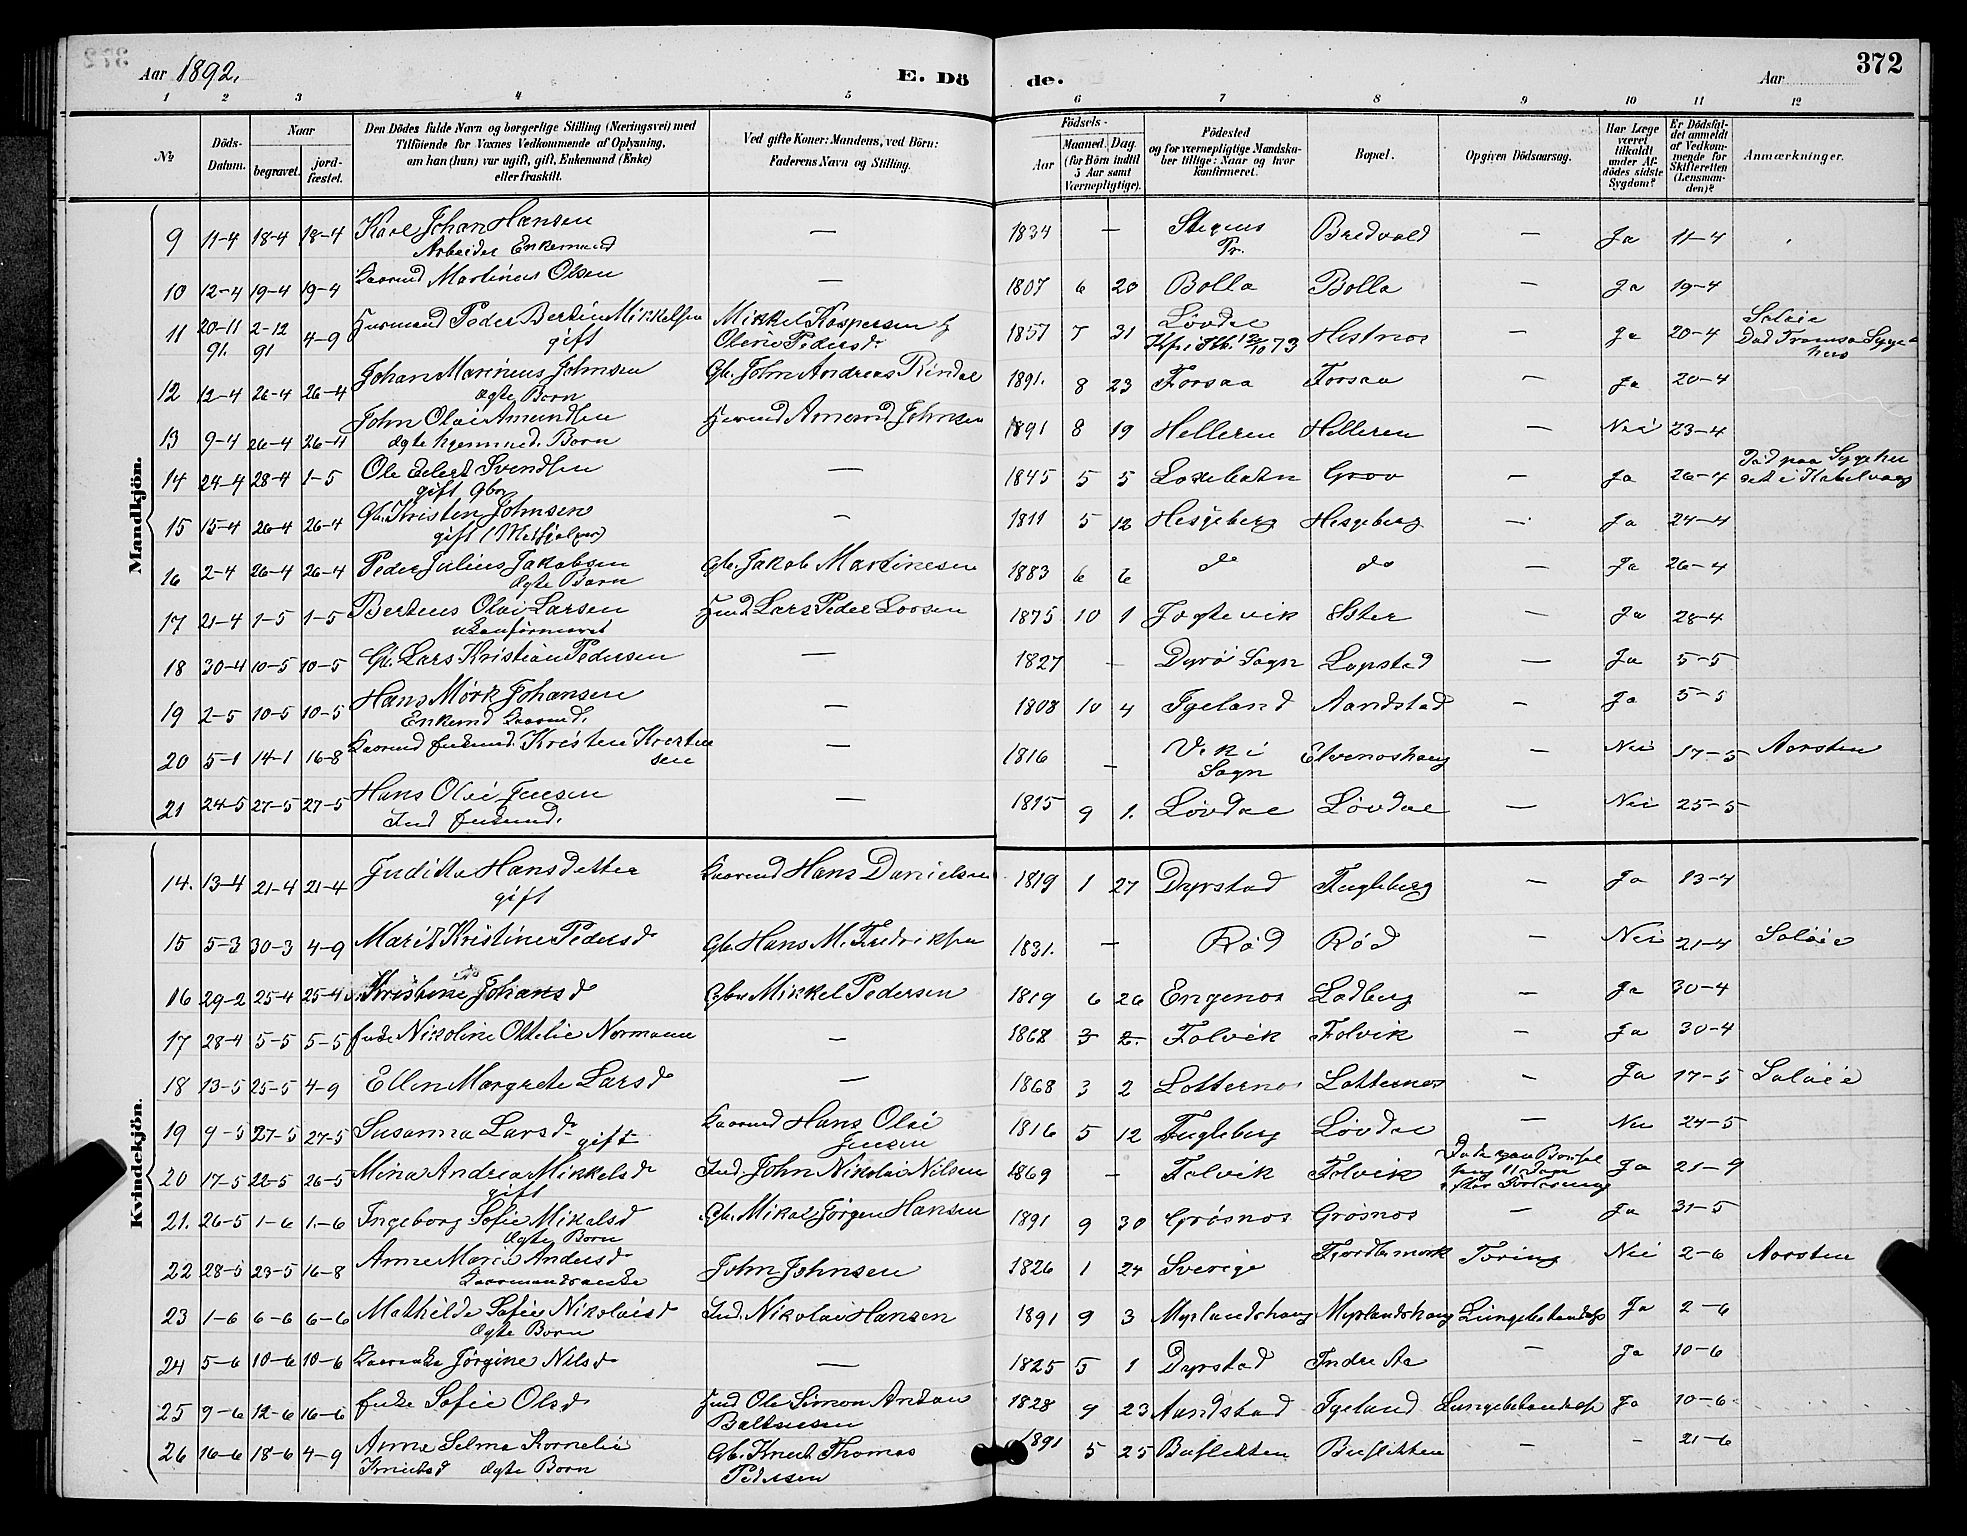 372
Aar 1892.
E. Dö de.
Aar
1 2 3 4 5 6 7 8 9 10 11 12
№
Döds-Datum.
Naar
begravet.
jord-fæstet.
Den Dödes fulde Navn og borgerlige Stilling (Næringsvei) med Tilföiende for Voxnes Vedkommende af Oplysning, om han (hun) var ugift, gift, Enkemand (Enke) eller fraskilt.
Ved gifte Koner: Mandens, ved Börn: Faderens Navn og Stilling.
Födsels-
Aar
Maaned. Dag.
(for Börn indtil 5 Aar samt Værnepligtige).
Födested og for værnepligtige Mandskaber tillige: Naar og hvor konfirmeret.
Bopæl.
Opgiven Dödsaarsag.
Har Læge været tilkaldt under Afdödes sidste Sygdom?
Er Dödsfaldet anmeldt af Vedkommende for Skifteretten (Lensmanden)?
Anmærkninger.
Mandkjön.
9 11-4 18-4 18-4 Karl Johan Hansen — 1834 — Bredvold — Ja 11-4
Arbeider Enkemand
10 12-4 19-4 19-4 Kaarmd Martinus Olsen — 1807 6 20 Bolla Bolla — Ja 19-4
11 20-11 91. 2-12 91 4-9 Husmand Peder Bertin Mikkelsen Mikkel Kaspersen 1857 7 31 Løvdal — Ja 20-4
gift
12 12-4 26-4 26-4 Johan Marinius Johnsen Gb. John Andreas Rindal 1891. 8 23 Forsaa Forsaa — Ja 20-4
ægte Barn
13 9-4 26-4 26-4 John Olai Amundsen Amund Johnsen 1891 8 19 Helleren Helleren — Nei 23-4
ægte hjemmed. Barn
14 24-4 28-4 1-5 Ole Svendsen — 1845 5 5 Grov — Ja 26-4
gift Gbr
15 15-4 26-4 26-4 Gb. Kristen Johnsen — 1811 5 12 Hesjeberg Hesjeberg — Ja 24-4
gift (Medhjælper)
16 2-4 26-4 26-4 Peder Julius Jakobsen Gb. Jakob Martinesen 1883 6 6 do do — Ja 26-4
Ægte Barn
17 21-4 1-5 1-5 Berteus Olai Larsen Lars Peder Larsen 1875 10 1 — Ja 28-4
ukonfirmeret
18 30-4 10-5 10-5 Gb. Lars Kristian Pedersen — 1827 — Dyrø Sogn Lapstad — Ja 5-5
19 2-5 10-5 10-5 Hans Mørk Johansen — 1808 10 4 Tyeland Aandstad — Ja 5-5
Enkemd Kaarmd.
20 5-1 14-1 16-8 Kaarmd Enkemd. Kristen — 1816 — Elvenoshaug — Nei 17-5 Aarsten
21 24-5 27-5 27-5 Hans Olai Jensen — 1815 9 1. Løvdal Løvdal — Nei 25-5
Kvindekjön.
14. 13-4 21-4 21-4 Juditta Hansdatter Kaarmd Hans Danielsen 1819 1 27 Dyrstad Fugleberg — Ja 13-4
gift
15 5-3 30-3 4-9 Marit Kristine Pedersd Gb. Hans M. Fredriksen 1831. — Rød Rød — Nei 21-4 Saløie
16 29-2 25-4 25-4 Kristine Johansd Gbr Mikkel Pedersen 1819 6 26 Engenos Ladberg — Ja 30-4
17 28-4 5-5 5-5 Nikoline Ottelie Normann — 1868 3 2. Folvik Folvik — Ja 30-4
18 13-5 25-5 4-9 Ellen Margrete Larsd — 1868 3 2 Lotternos Lotternos — Ja 17-5 Saløie
19 9-5 27-5 27-5 Susanna Larsd. gift Kaarmd Hans Olai 1816 5 12 Fugleberg Løvdal — Nei 24-5
Jensen
20 17-5 22-5 26-5 Mina Andrea Mikkelsd Ind. John Nikolai Nilsen 1869 — Folvik Folvik Ja 21-9
gift
21. 26-5 1-6 1-6 Ingeborg Sofie Mikalsd Gb. Mikal Jørgen Hansen 1891 9 30 Grøsnos Grøsnos — Ja 31-5
Ægte Barn
22 28-5 23-5 16-8 Anne Marie Andersd John Johnsen 1826 1 24 Sverige Tæring Nei 2-6 Aarsten
Kaarmandsenke
23 1-6 6-6 6-6 Mathilde Sofie Nikolaisd Ind. Nikolai Hansen 1891 9 3 Myrlandshaug Myrlandshaug Ja 2-6
Ægte Barn
24 5-6 10-6 10-6 Jørgine Nilsd — 1825 5 1 Dyrstad Indre Aa — Ja 10-6
25 9-6 12-6 16-6 Enke Sofie Olsd Ole Simon Antan 1828 9 23 Aandstad Tyeland Ja 10-6
Baltsersen
26 16-6 18-6 4-9 Anne Selma Kornelie Gb. Knut Thomas 1891 5 25 — — 21-6
Knutsd Ægte Barn Pedersen